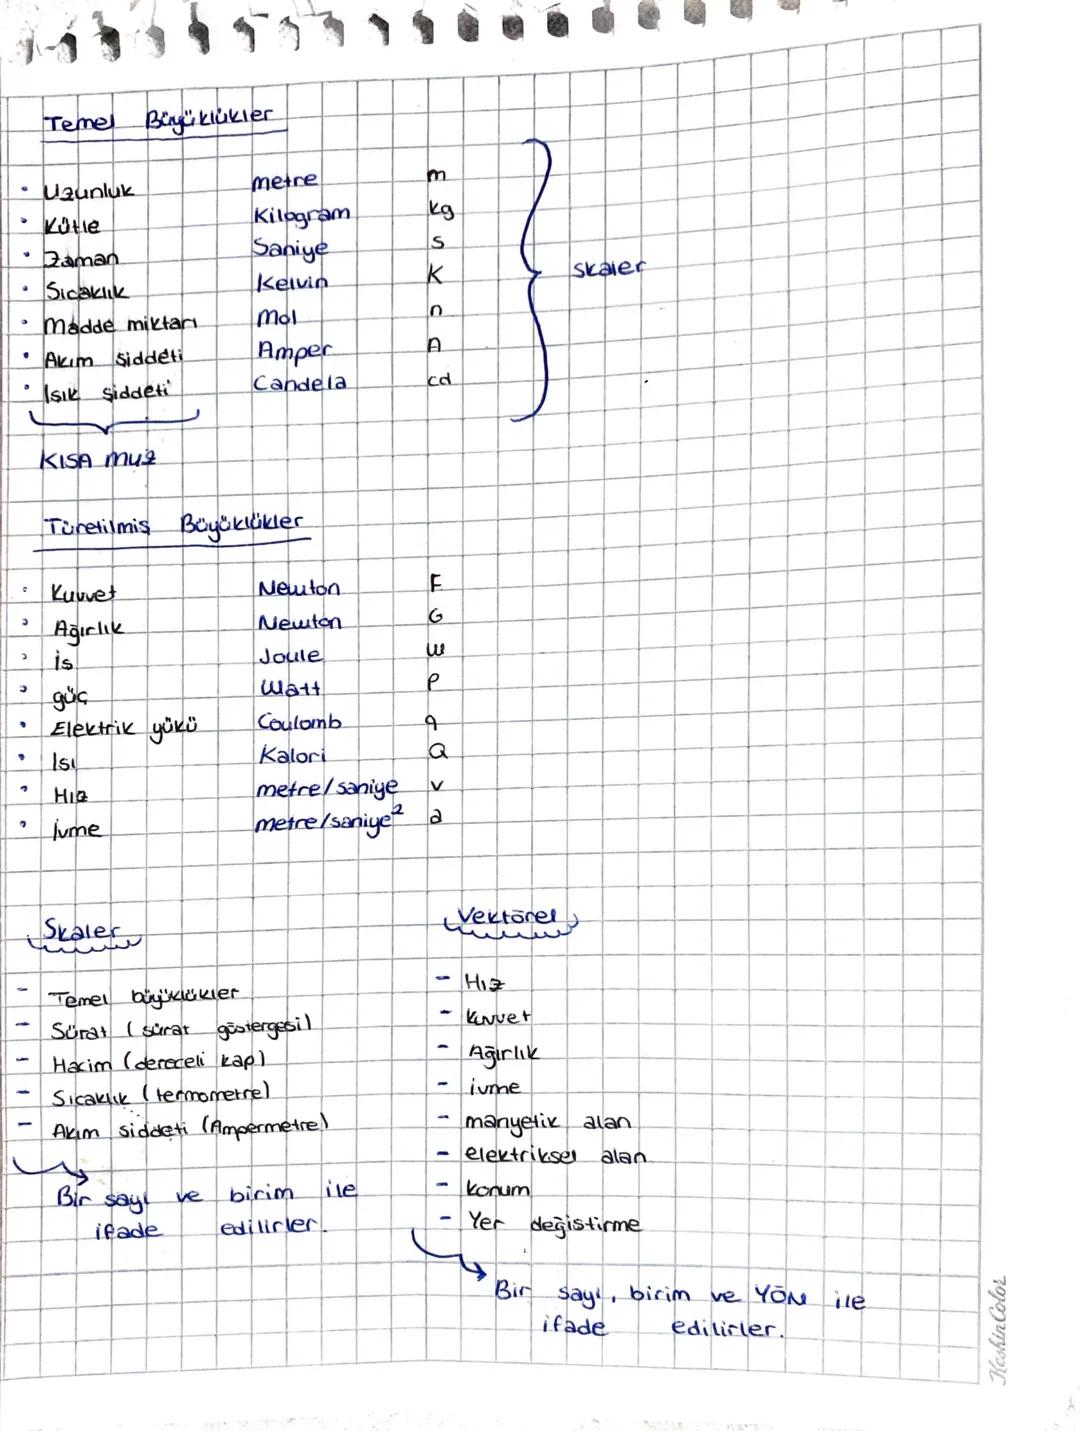 Temel Büyüklükler
• Uzunluk metre m
• Kütle Kilogram kg
• Zaman Saniye s
• Sıcaklık Kelvin K
• Madde miktarı Mol n
• Akım şiddeti Amper A
• Işık şiddeti Candela cd
skaler
KISA muz
Türetilmiş Büyüklükler
• Kuvvet Newton F
• Ağırlık Newton G
• İş Joule W
• güç Watt P
• Elektrik yükü Coulomb q
• Isı Kalori Q
• Hız metre/saniye v
• İvme metre/saniye² a
Skaler
- Temel büyüklükler
- Sürat (sürat göstergesi)
- Hacim (dereceli kap)
- Sıcaklık (termometre)
- Akım şiddeti (Ampermetre)
Bir sayı ve birim ile
ifade edilirler.
Vektörel
- Hız
- Kuvvet
- Ağırlık
- ivme
- manyetik alan
- elektriksel alan
- konum
- Yer değiştirme
Bir sayı, birim ve YÖN ile
ifade edilirler.
KeskinColor